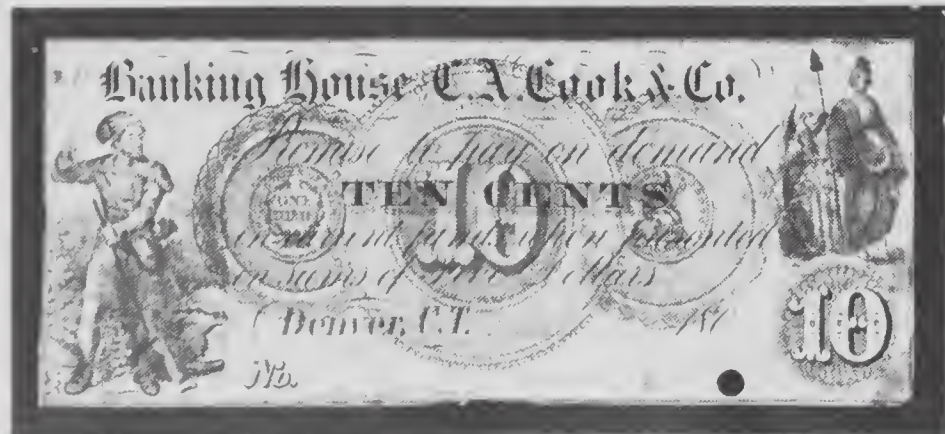 Banking House C.A. Cook & Co.
Promise to pay on demand
TEN CENTS
10
in current funds when presented
in sums of Dollars
Denver, C.T. 186
No.
10